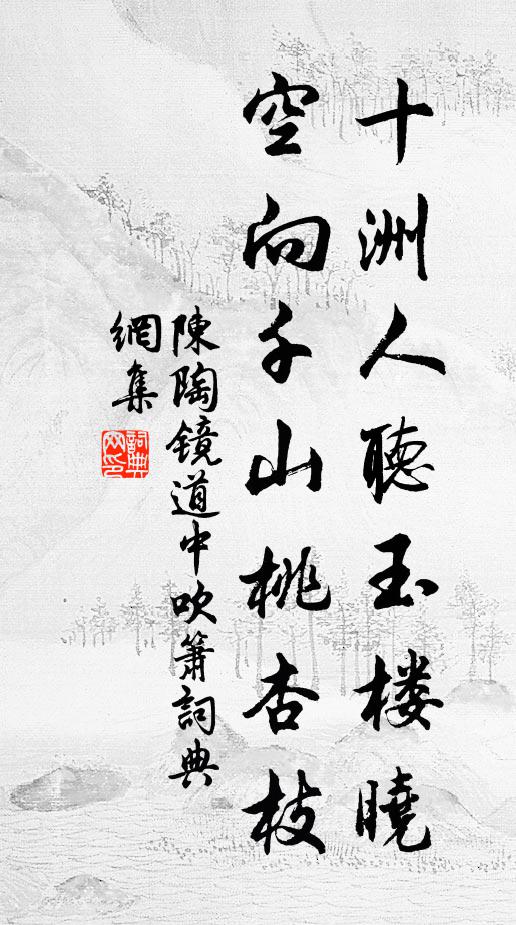 十洲人聽玉楼曉
空向千山桃杏枝
陳陶鏡道中吹簫詞典
網集
詞典
网印